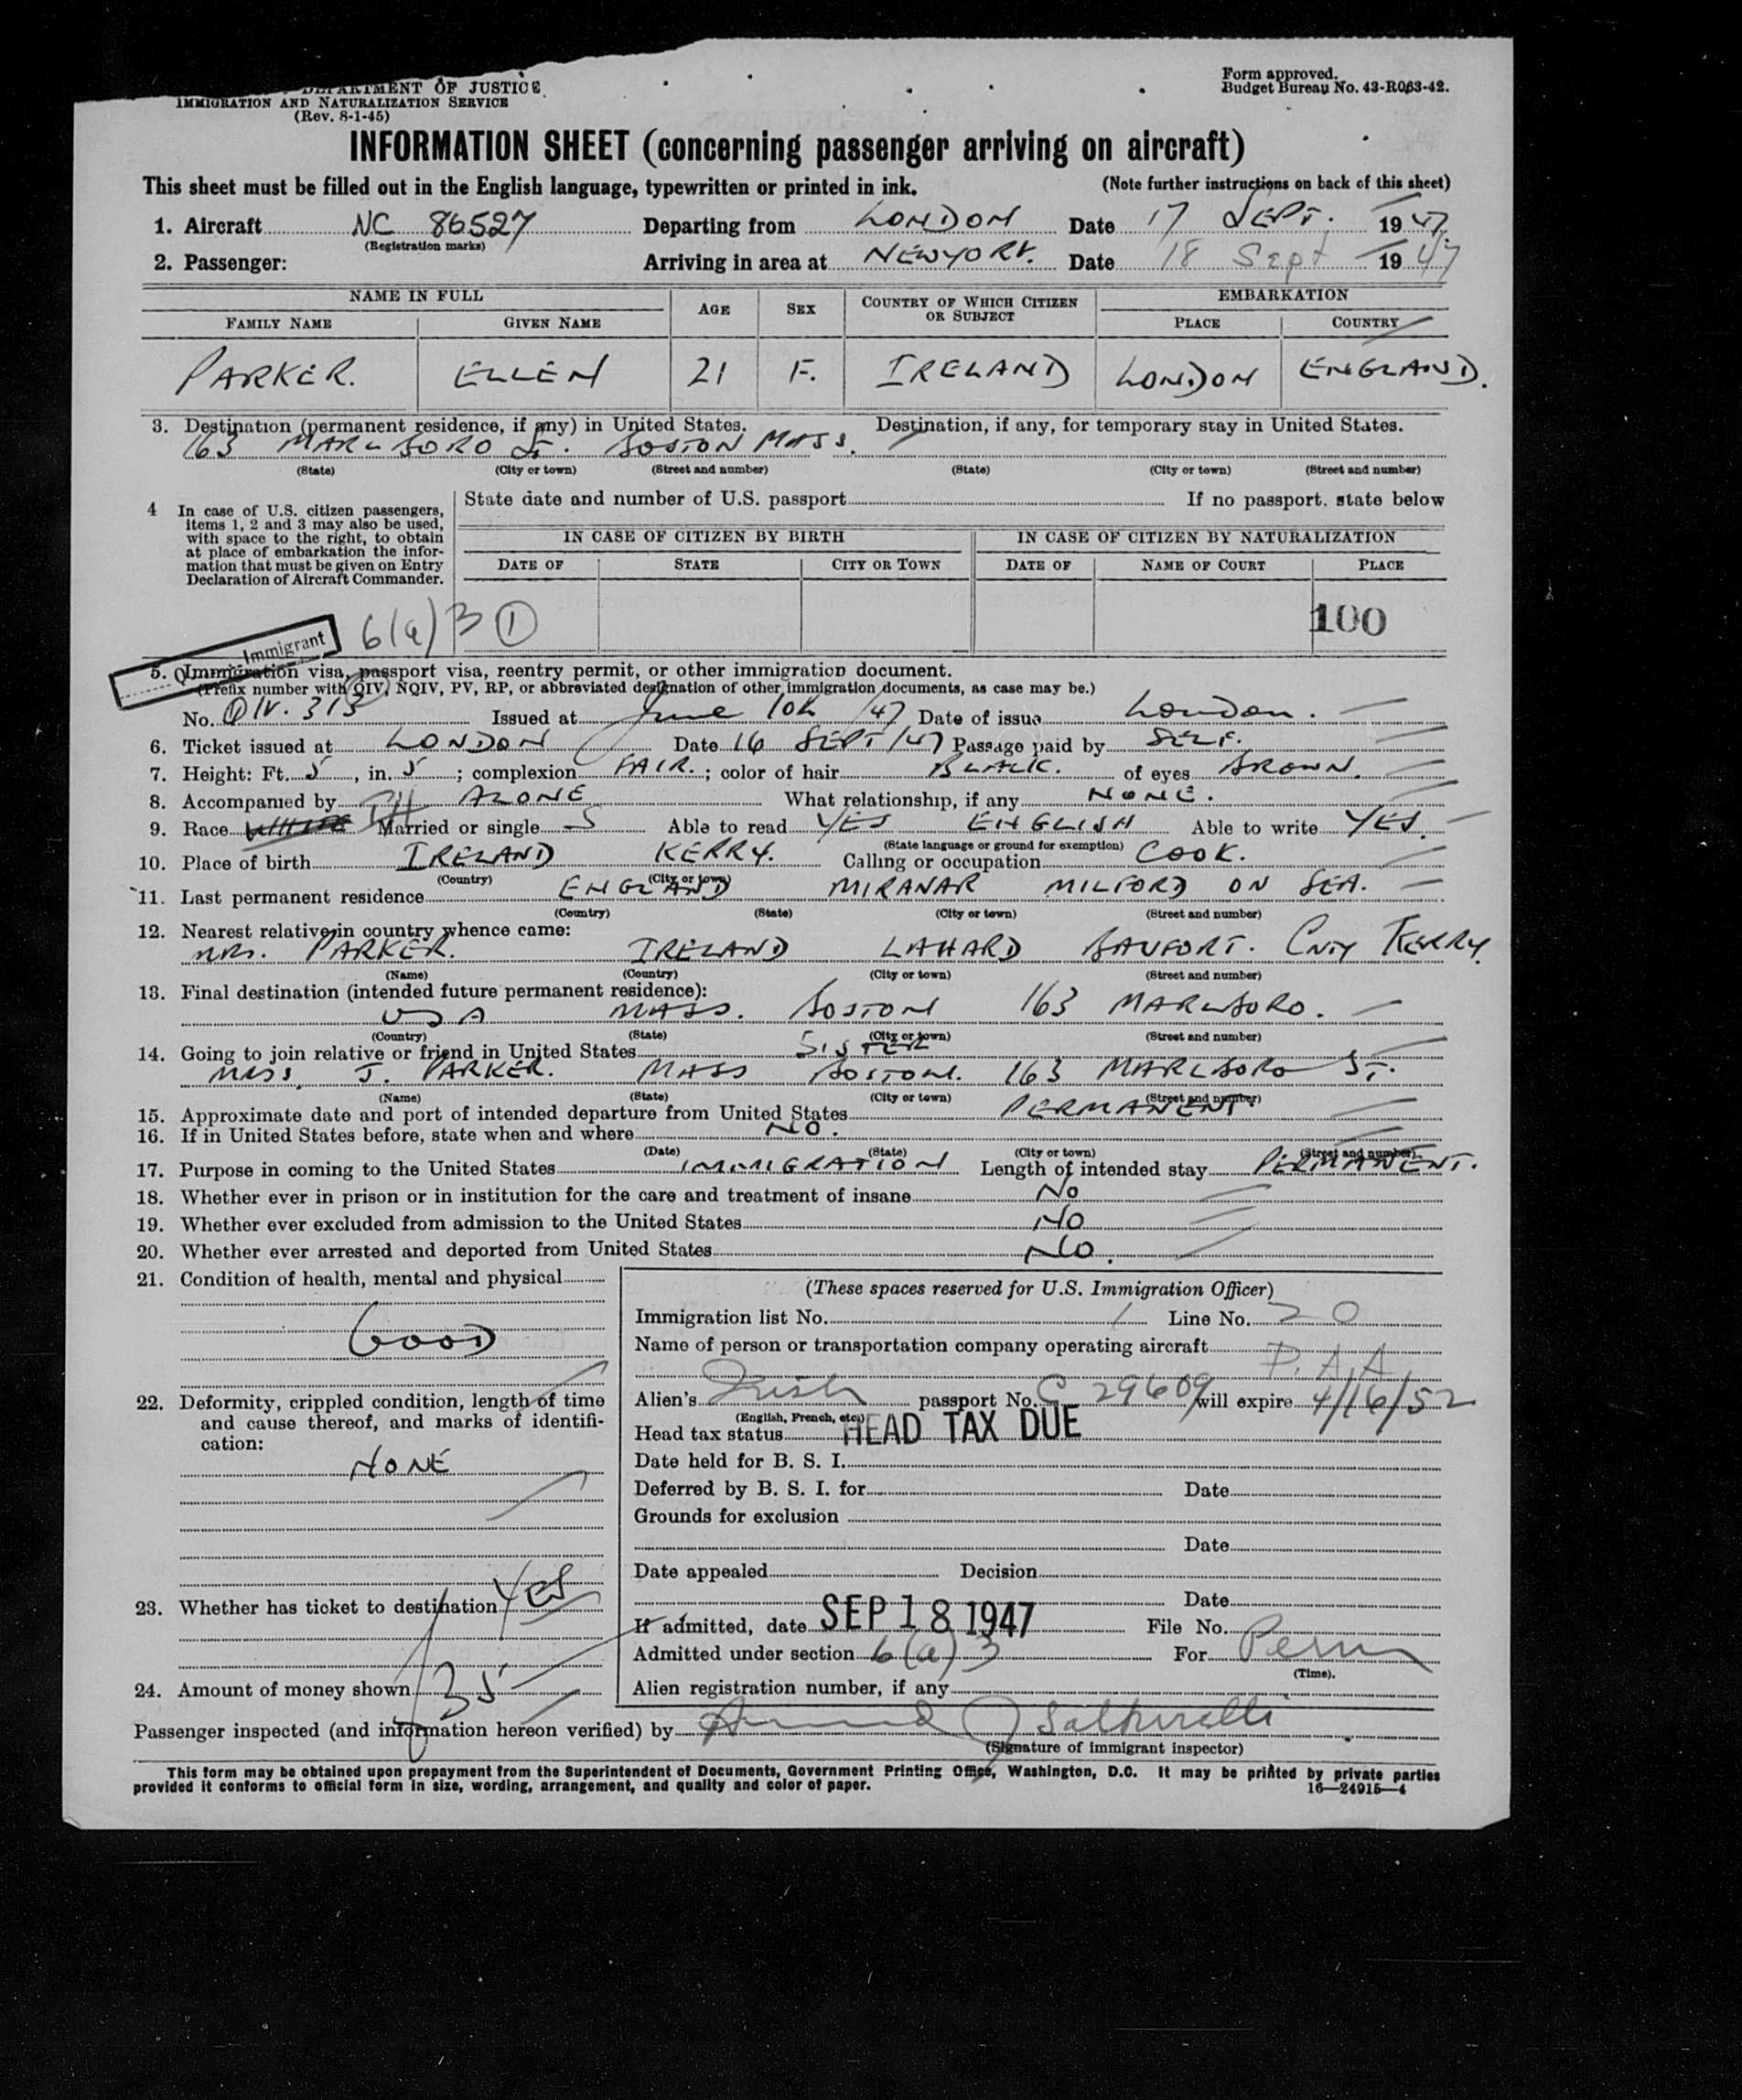 DEPARTMENT OF JUSTICE
IMMIGRATION AND NATURALIZATION SERVICE
(Rev. 8-1-45)
Form approved.
Budget Bureau No. 43-R063-42.
INFORMATION SHEET (concerning passenger arriving on aircraft)
This sheet must be filled out in the English language, typewritten or printed in ink. (Note further instructions on back of this sheet)
1. Aircraft NC 86527 Departing from LONDON Date 17 SEPT. 1947
(Registration marks)
2. Passenger: Arriving in area at NEWYORK. Date 18 Sept 1947
NAME IN FULL AGE SEX COUNTRY OF WHICH CITIZEN OR SUBJECT EMBARKATION
FAMILY NAME GIVEN NAME PLACE COUNTRY
PARKER. ELLEN 21 F. IRELAND LONDON ENGLAND.
3. Destination (permanent residence, if any) in United States. Destination, if any, for temporary stay in United States.
163 MARLBORO St. BOSTON MASS.
(State) (City or town) (Street and number) (State) (City or town) (Street and number)
4 In case of U.S. citizen passengers, items 1, 2 and 3 may also be used, with space to the right, to obtain at place of embarkation the information that must be given on Entry Declaration of Aircraft Commander.
State date and number of U.S. passport If no passport, state below
IN CASE OF CITIZEN BY BIRTH IN CASE OF CITIZEN BY NATURALIZATION
DATE OF STATE CITY OR TOWN DATE OF NAME OF COURT PLACE
6(a)3 1 100
Immigrant
5. Immigration visa, passport visa, reentry permit, or other immigration document.
(Prefix number with QIV, NQIV, PV, RP, or abbreviated designation of other immigration documents, as case may be.)
No. QIV. 313 Issued at June 10th /47 Date of issue London.
6. Ticket issued at LONDON Date 16 SEPT/47 Passage paid by SELF.
7. Height: Ft. 5, in. 5; complexion FAIR.; color of hair BLACK. of eyes BROWN.
8. Accompanied by ALONE What relationship, if any NONE.
9. Race WHITE Married or single S Able to read YES ENGLISH Able to write YES.
(State language or ground for exemption)
10. Place of birth IRELAND KERRY. Calling or occupation COOK.
(Country) (City or town)
11. Last permanent residence ENGLAND MIRANAR MILFORD ON SEA.
(Country) (State) (City or town) (Street and number)
12. Nearest relative in country whence came:
MRS. PARKER. IRELAND LAHARD BAUFORT. CNTY KERRY
(Name) (Country) (City or town) (Street and number)
13. Final destination (intended future permanent residence):
USA MASS. BOSTON 163 MARLBORO.
(Country) (State) (City or town) (Street and number)
14. Going to join relative or friend in United States SISTER
MISS. J. PARKER. MASS BOSTON. 163 MARLBORO ST.
(Name) (State) (City or town) (Street and number)
15. Approximate date and port of intended departure from United States PERMANENT
16. If in United States before, state when and where NO.
(Date) (State) (City or town) (Street and number)
17. Purpose in coming to the United States IMMIGRATION Length of intended stay PERMANENT.
18. Whether ever in prison or in institution for the care and treatment of insane No
19. Whether ever excluded from admission to the United States NO
20. Whether ever arrested and deported from United States NO.
21. Condition of health, mental and physical
GOOD
22. Deformity, crippled condition, length of time and cause thereof, and marks of identification:
NONE
23. Whether has ticket to destination YES
24. Amount of money shown 35
(These spaces reserved for U.S. Immigration Officer)
Immigration list No. 1 Line No. 20
Name of person or transportation company operating aircraft
P.A.A
Alien's Irish passport No. C 29609 will expire 4/16/52
(English, French, etc.)
Head tax status HEAD TAX DUE
Date held for B. S. I.
Deferred by B. S. I. for Date
Grounds for exclusion
Date
Date appealed Decision
Date
If admitted, date SEP 18 1947 File No.
Admitted under section 6(a)3 For Perm
(Time).
Alien registration number, if any
Passenger inspected (and information hereon verified) by
(Signature of immigrant inspector)
This form may be obtained upon prepayment from the Superintendent of Documents, Government Printing Office, Washington, D.C. It may be printed by private parties
provided it conforms to official form in size, wording, arrangement, and quality and color of paper. 16—24915—4